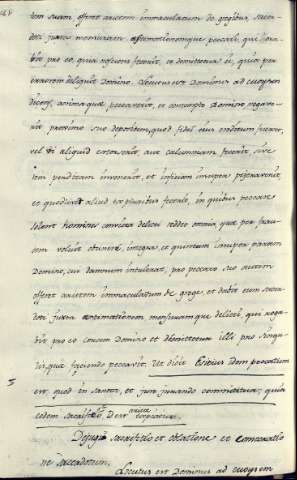 tem suam offeret arietem immaculatum de gregibus, sacer-
doti juxta mensuram æstimationemque peccati, qui orabit
pro eo, quia nesciens fecerit, et dimittetur ei, quia per
errorem deliquit Domino. Locutus est Dominus ad Moysen
dicens, anima quæ peccaverit, et contempto Domino negave-
rit proximo suo depositum, quod fidei ejus creditum fuerat,
vel vi aliquid extorserit, aut calumniam fecerit, sive
rem perditam invenerit, et inficians insuper pejeraverit,
et quodlibet aliud ex pluribus fecerit, in quibus peccare
solent homines, convicta delicti reddet omnia, quæ per frau-
dem voluit obtinere, integra, et quintam insuper partem
Domino, cui damnum intulerat, pro peccato suo autem
offeret arietem immaculatum de grege, et dabit eum sacer-
doti juxta æstimationem mensuramque delicti, qui roga-
bit pro eo coram Domino, et dimittetur illi pro singu-
lis, quæ faciendo peccavit.
est, quod in
eodem sacrificio
De sacrificio et oblatione et consecratio
ne sacerdotum.
Locutus est Dominus ad Moysem